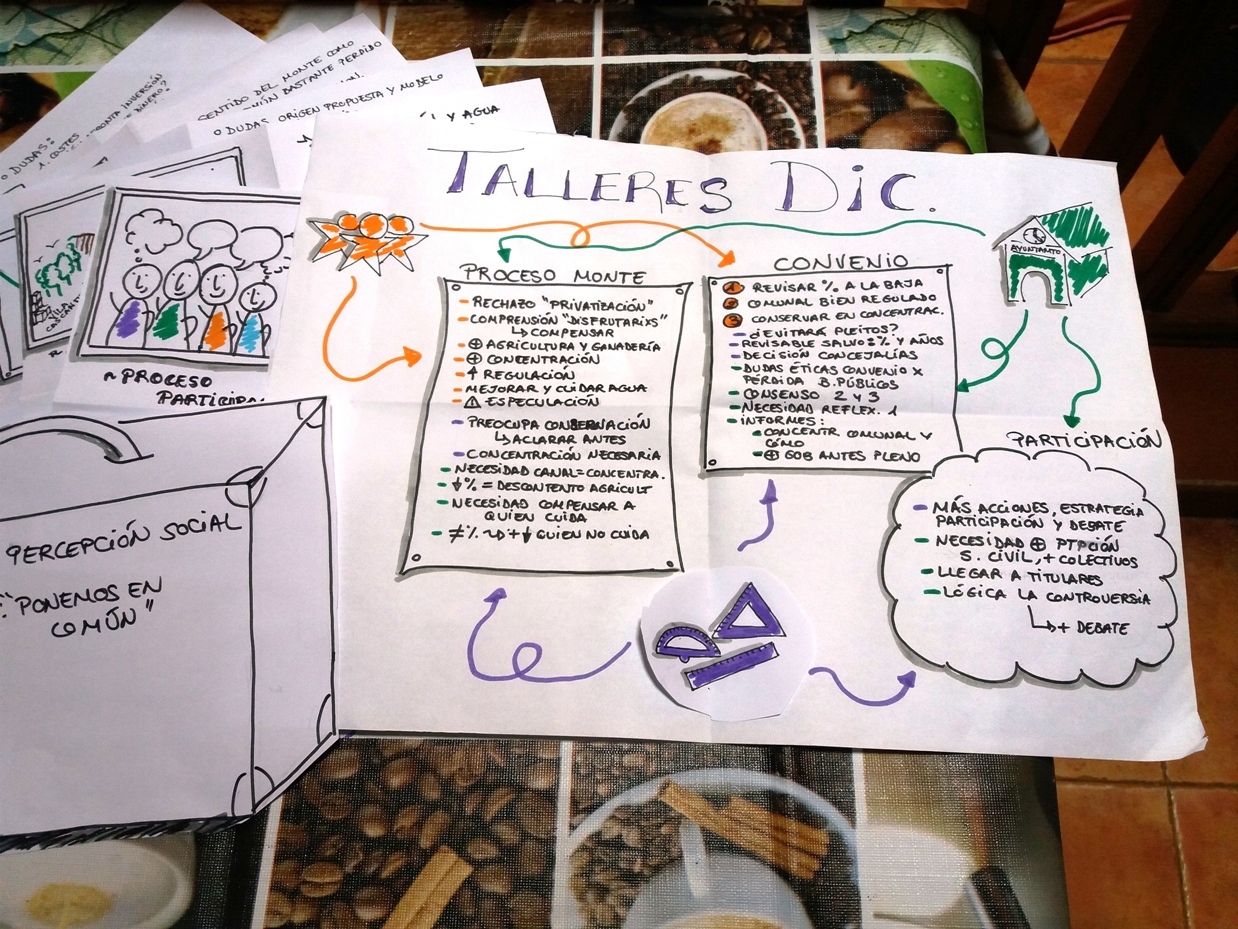 DUDAS:
1. COSTES
INVERSIÓN
DINERO?
SENTIDO DEL MONTE COMO
BASTANTE PERDIDO
DUDAS ORIGEN PROPUESTA Y MODELO
Y AGUA
TALLERES DIC.
AYUNTAMTO
PROCESO MONTE
- RECHAZO "PRIVATIZACIÓN"
- COMPRENSIÓN "DISFRUTARIXS"
↳ COMPENSAR
- ⊕ AGRICULTURA Y GANADERÍA
- ⊕ CONCENTRACIÓN
- ↑ REGULACIÓN
- MEJORAR Y CUIDAR AGUA
- ⚠ ESPECULACIÓN
- PREOCUPA CONSERVACIÓN
↳ ACLARAR ANTES
- CONCENTRACIÓN NECESARIA
- NECESIDAD CANAL = CONCENTRA.
- ↓% = DESCONTENTO AGRICULT
- NECESIDAD COMPENSAR A
QUIEN CUIDA
- ≠% ↝ + ↓ QUIEN NO CUIDA
CONVENIO
1 REVISAR % A LA BAJA
2 COMUNAL BIEN REGULADO
3 CONSERVAR EN CONCENTRAC.
- ¿EVITARÁ PLEITOS?
- REVISABLE SALVO % Y AÑOS
- DECISIÓN CONCEJALÍAS
- DUDAS ÉTICAS CONVENIO X
PÉRDIDA B. PÚBLICOS
- CONSENSO 2 Y 3
- NECESIDAD REFLEX. 1
- INFORMES:
- CONCENTR. COMUNAL Y
CÓMO
- ⊕ GOB ANTES PLENO
PARTICIPACIÓN
- MÁS ACCIONES, ESTRATEGIA
PARTICIPACIÓN Y DEBATE
- NECESIDAD ⊕ PTPCIÓN
S. CIVIL, + COLECTIVOS
- LLEGAR A TITULARES
- LÓGICA LA CONTROVERSIA
↳ + DEBATE
~PROCESO
PERCEPCIÓN SOCIAL
"PONEMOS EN
COMÚN"